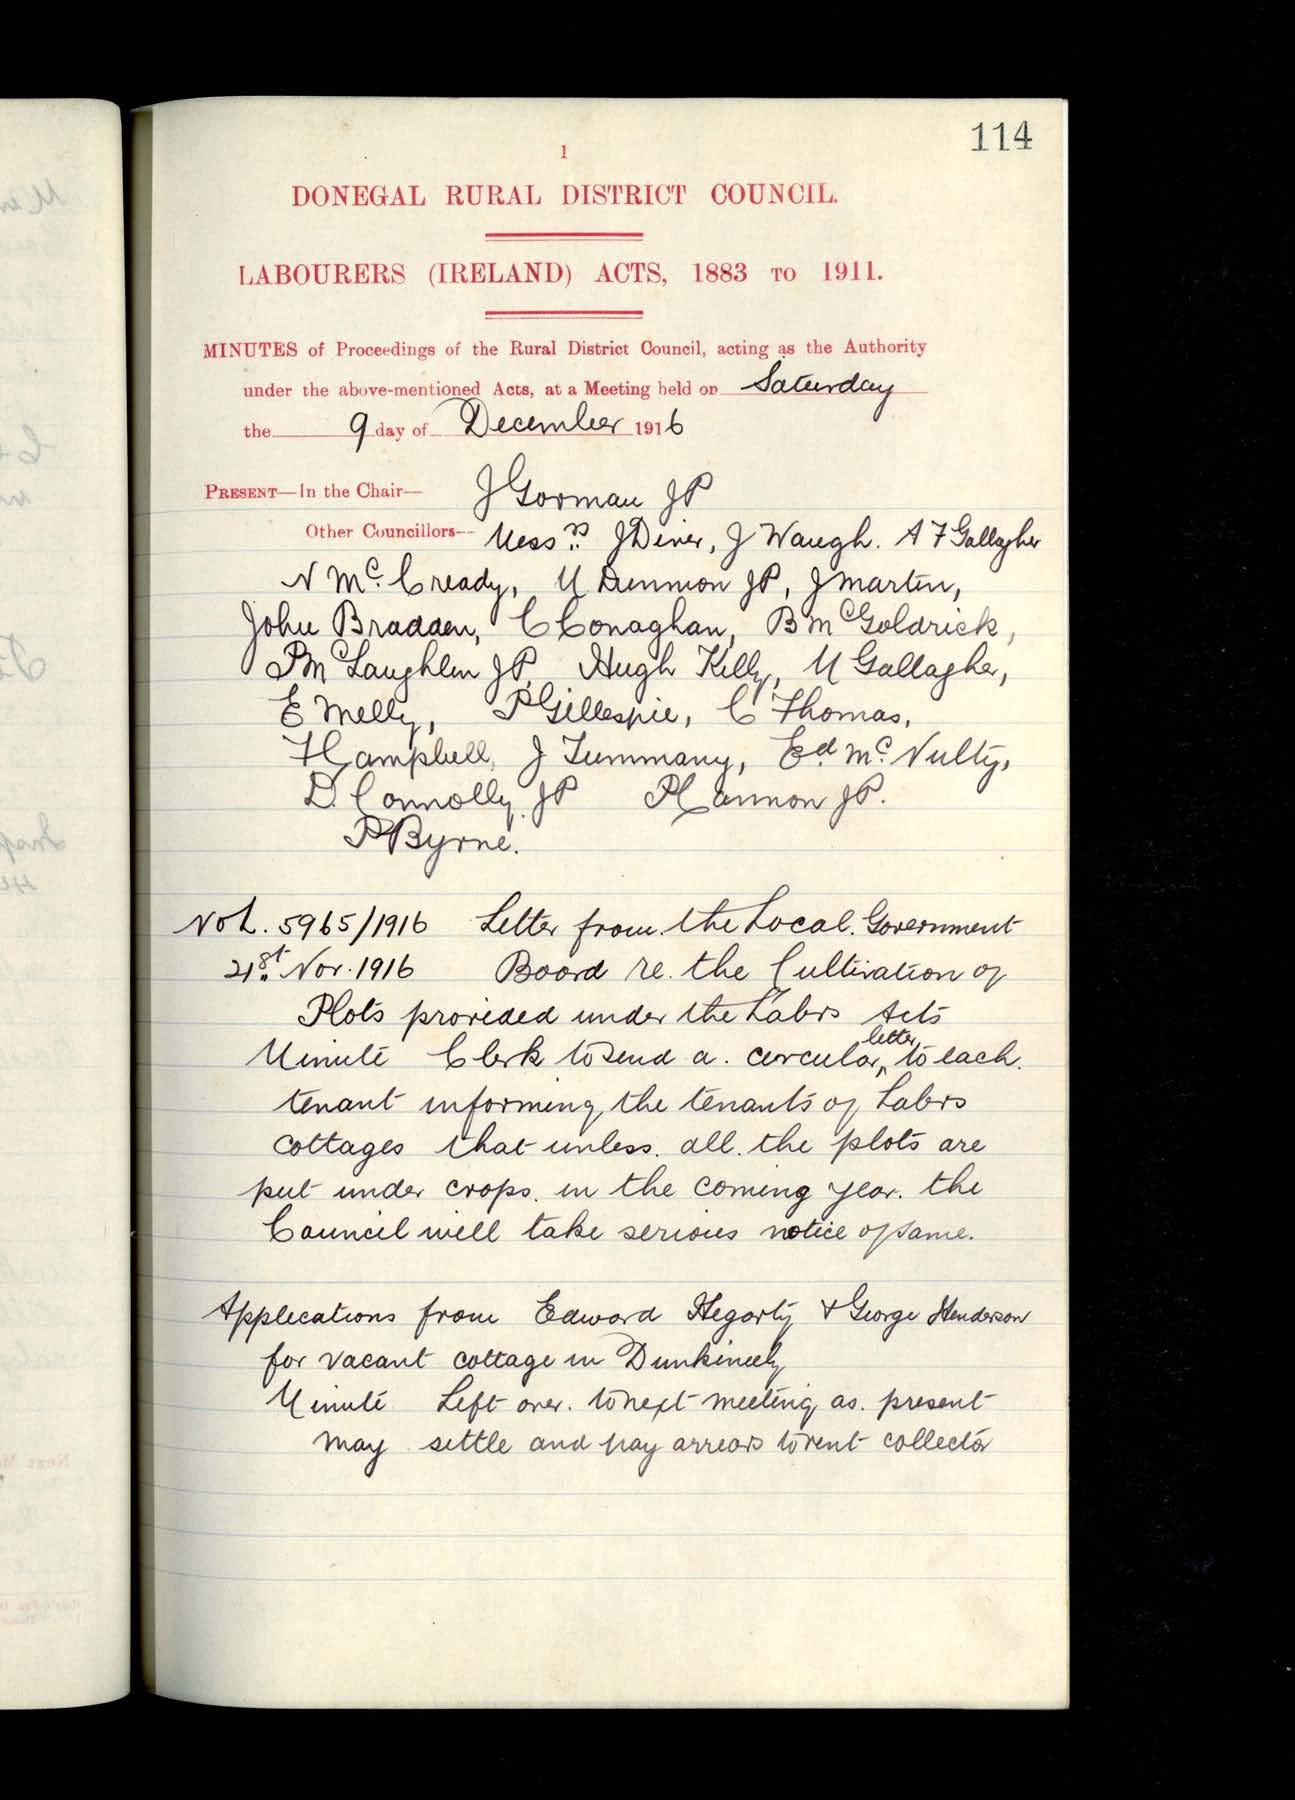 114
1
DONEGAL RURAL DISTRICT COUNCIL.
LABOURERS (IRELAND) ACTS, 1883 TO 1911.
MINUTES of Proceedings of the Rural District Council, acting as the Authority
under the above-mentioned Acts, at a Meeting held on Saturday
the 9 day of December 1916
PRESENT—In the Chair— J Gorman JP
Other Councillors— Messrs J Diver, J Waugh. A F Gallagher
N McCready, M Dunnion JP, J Martin,
John Bradden, C Conaghan, B McGoldrick,
P McLaughlin JP, Hugh Kelly, M Gallagher,
E Melly, P Gillespie, C Thomas,
F Campbell, J Tummany, Ed. McNulty,
D Connolly JP P Cannon JP.
P Byrne.
No L. 5965/1916 Letter from the Local Government
21st Nov. 1916 Board re. the Cultivation of
Plots provided under the Labrs Acts
Minute Clerk to send a circular letter to each
tenant informing the tenants of Labrs
cottages that unless all the plots are
put under crops in the coming year the
Council will take serious notice of same.
Applications from Edward Hegarty & George Henderson
for vacant cottage in Dunkineely
Minute Left over to next meeting as present
may settle and pay arrears to rent collector